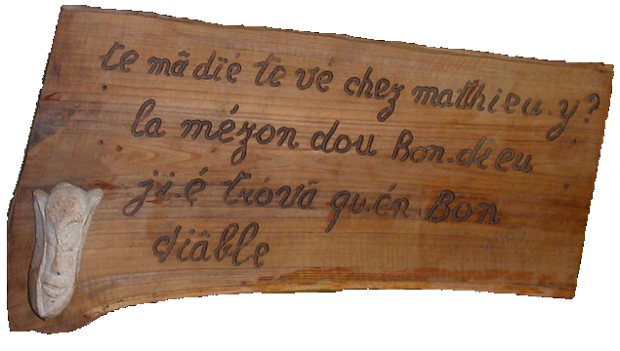 te mâdïé te vé chez matthieu.y?
la mézon dou Bon.dieu
ji.é trovâ qu.én Bon
diâble